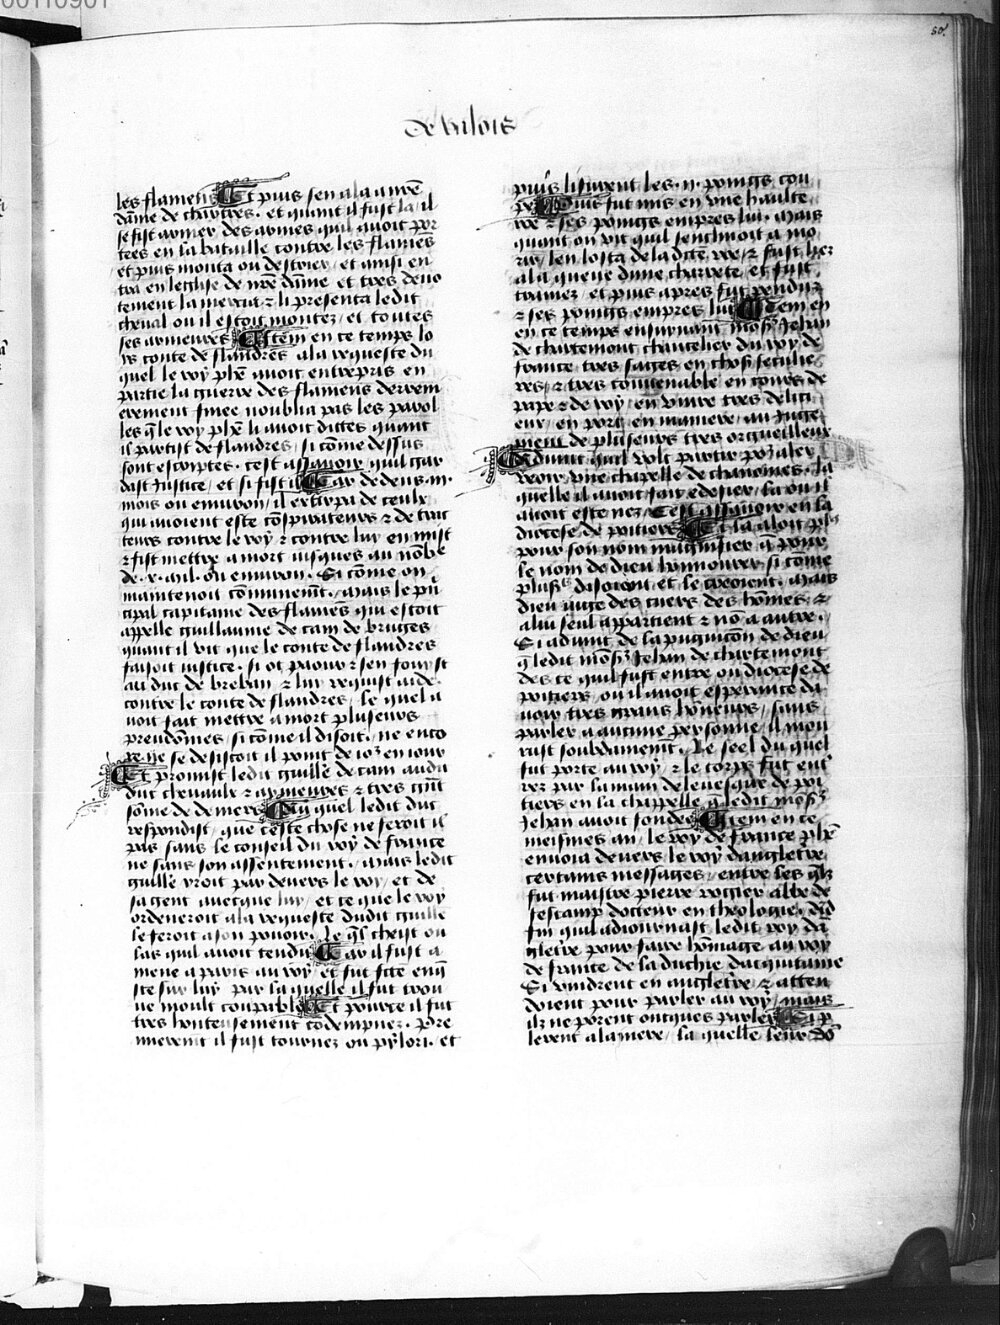 00110901
80.
de valois
les flamens Et puis sen ala a nre
dame de chartres. et quant il fust la il
se fist armer des armes quil auoit por
tees en sa bataille contre les flames
et puis monta ou destrier / et ainsi en
tra en leglise de nre dame et tres deuo
tement la mercia & li presenta ledit
cheual ou il estoit montez / et toutes
ses armeures Item en ce temps lo
is conte de flandres a la requeste du
quel le roy phe auoit entrepris en
partie la guerre des flamens derren
erement finee noublia pas les parol
les q le roy phe li auoit dittes quant
il partist de flandres / si come dessus
sont escriptes. cest assauoir quil gar
dast Justice / et si fist il Car dedens .iii.
mois ou enuiron / il extirpa de ceulx
qui auoient este cospirateurs & de trai
teurs contre le roy & contre luy en mist
& fist mettre a mort iusques au nobre
de .x. mil. ou enuiron. Si come on
maintenoit communemt. Mais le pri
cipal capitaine des flames qui estoit
appelle guillaume de cam de bruges
quant il vit que le conte de flandres
faisoit iustice. si ot paour & sen fouyst
au duc de breban & luy requist aide
contre le conte de flandres / le quel a
uoit fait mettre a mort pluseurs
preudomes / si come il disoit. ne enco
re ne se desistoit il point de ior en iour
Et promist ledit guille de cam au dit
duc cheuaulx & armeures & tres grat
some de deniers Au quel ledit duc
respondist / que ceste chose ne feroit il
pas sans le conseil du roy de france
ne sans son assentement. Mais ledit
guille yroit par deuers le roy / et de
sa gent auecque luy / et ce que le roy
ordeneroit a la requeste dudit guille
le feroit a son pouoir. Le qls cheist ou
las quil auoit tendu Car il fust a
mene a paris au roy / et fut fcte enq
ste sur luy par la quelle il fut trou
ue moult coupable Et pource il fut
tres honteusement codempnez. Pre
mierent il fust tournez ou pylori. et
puis lisirent les .ii. poings cou
pe Puis fut mis en vne haulte
roe & ses poings empres lui. Mais
quant on vit quil sentimoit a mo
rir / len losta de la dicte roe / & fust lier
a la queue dune charrete / et fust
trainez / et puis apres fut pendu
& ses poings empres lui Item en
en ce temps ensuiuant moss Jehan
de chartemont chancelier du roy de
france tres sages en choses seculie
res / & tres conuenable en cours de
pape & de roy / en viure tres delici
eux / en port / en maniere / au Juge
ment de pluseurs tres orgueilleux
Aduint quil volt partir por aler
veoir vne chapelle de chanoines. La
quelle il auoit fait edefier / la ou il
auoit este nez. Cest assauoir en la
diocese de poitiers Et la aloit plus
pour son nom magnifier q pour
le nom de dieu honnourer. si come
plusrs disoient et le creoient. Mais
dieu iuge des cuers des homes. &
a lui seul appartient & no a autre.
Si aduint de la pugnicon de dieu
q ledit moss Jehan de chartemont
des ce quil fust entre ou diocese de
poitiers / ou il auoit esperance da
uoir tres grans honeurs / sans
parler a aucune personne / il mou
rust soubdainement. Le seel du quel
fut porte au roy. & le corps fut ent
rez par la main de leuesque de poi
tiers en la chappelle q ledit moss
Jehan auoit fondee Item en ce
meismes an / le roy de france phe
enuoia deuers le roy dangleterre
certains messages / entre les qlz
fut maistre pierre rogier abbe de
fescamp docteur en theologie. Afin
fin quil adiournast ledit roy da
gleterre pour faire homage au roy
de france de la duchie dacquitaine
Si vindrent en angleterre. & atten
doient pour parler au roy / mais
ilz ne porent oncques parler Si p
lerent a la mere / la quelle leur do